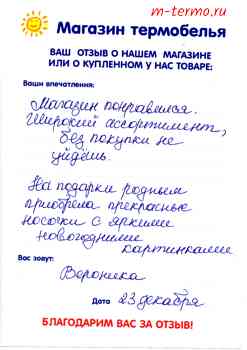 m-termo.ru
Магазин термобелья
ВАШ ОТЗЫВ О НАШЕМ МАГАЗИНЕ
ИЛИ О КУПЛЕННОМ У НАС ТОВАРЕ:
Ваши впечатления:
Магазин понравился.
Широкий ассортимент,
без покупки не
уйдёшь.
На подарки родным
приобрела прекрасные
носочки с яркими
новогодними
картинками
Вас зовут:
Вероника
Дата 23 декабря
БЛАГОДАРИМ ВАС ЗА ОТЗЫВ!